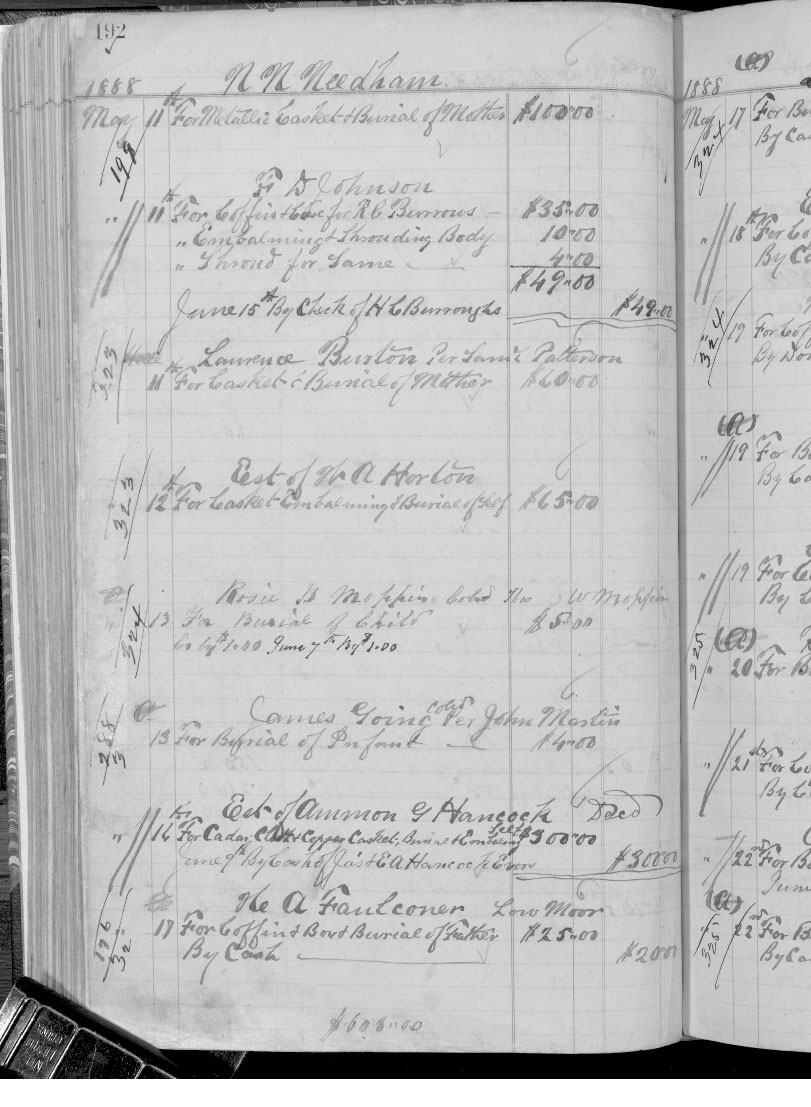 192
1888 N N Needham
May 11th For Metallic Casket & Burial of Mother $100.00
198
F D Johnson
" 11th For Coffin & Case for R C Burrows $35.00
" Embalming & Shrouding Body 10.00
" Shroud for Same 4.00
$49.00
June 15th By Check of H C Burroughs $49.00
323
Laurence Burton Per Saml Patterson
11th For Casket & Burial of Mother $60.00
323
Est of W A Horton
12th For Casket Embalming & Burial of Self $65.00
Rosie B Moppin Cold W Moppin
324
" 13 For Burial of Child $5.00
June 7th By $1.00
James Going Cold Per John Martin
13 For Burial of Infant $4.00
Est of Ammon G Hancock Decd
" 16th For Cadar Cloth & Copper Casket, Burial & Embalming Self $300.00
June 9th By Cash of Jas & E A Hancock Exors $300.00
A Faulconer Low Moor
17 For Coffin & Box & Burial of Father $25.00
By Cash $20.00
$608.00
1888 (a)
May 17 For
By
324
" 18th For
By
324
19 For
By
(a)
" 19 For
By
" 19 For
By
325 (a)
" 20 For
" 21st For
By
" 22nd For
June
(a)
325
22nd For
By